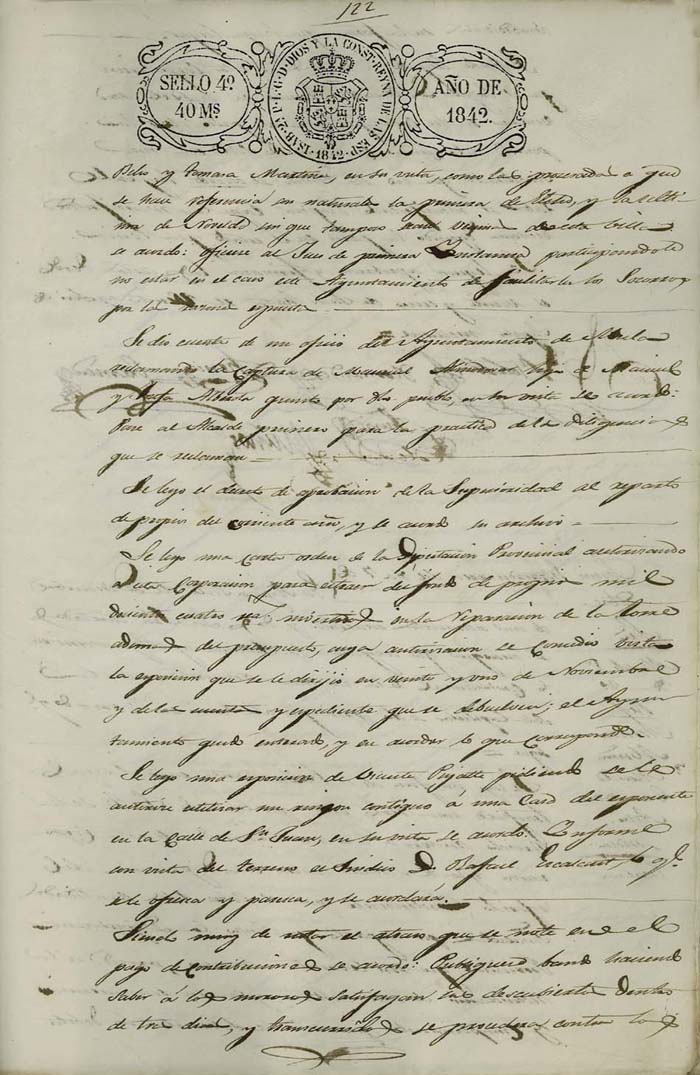 122
SELLO 4º
40 Ms
ISAB. 2ª P. L. G. D. DIOS Y LA CONST. REYNA DE LAS ESP.
1842
AÑO DE
1842.
y Tomasa Martinez, en su vista, como la procesada a que
se hace referencia son naturales la primera de y la
de Novelda sin que tampoco sean vecinas de esta villa
se acordó: oficiese al Juez de primera Instancia participandole
no estar en el caso este Ayuntamiento de facilitarle los Socorros
por la misma
Se dio cuenta de un oficio del Ayuntamiento de
reclamando la Captura de Manuel hijo de Manuel
y Josefa quinto por dho pueblo, en su vista se acordó:
Pase al Alcalde primero para la practica de las diligencias
que se reclaman
Se leyo el decreto de aprobacion de la Superioridad al reparto
de propios del corriente año, y se acordó su archivo
Se leyo una Carta orden de la Diputacion Provincial autorizando
a esta Corporacion para extraer del fondo de propios mil
doscientos cuatro invertidos en la reparacion de la Torre
ademas del presupuesto, cuya autorizacion se concedio vista
la exposicion que se le dirijio en veinte y uno de Noviembre
y de la cuenta y expediente que se debuelven; el Ayun
tamiento quedó enterado, y en acordar lo que corresponde.
Se leyo una exposicion de Vicente pidiendo se le
autorice utilizar un contiguo á una Casa del exponente
en la Calle de Sn Juan, en su vista se acordó: Informe
con vista del terreno el Sindico D. Rafael Escalant lo qe
se le ofrezca y paresca, y se acordará.
Siendo muy de notar el atraso que se nota en el
pago de contribuciones se acordó: Publiquese bando haciendo
saber á los morosos satisfagan los descubiertos dentro
de tres dias, y transcurridos se procederá contra los